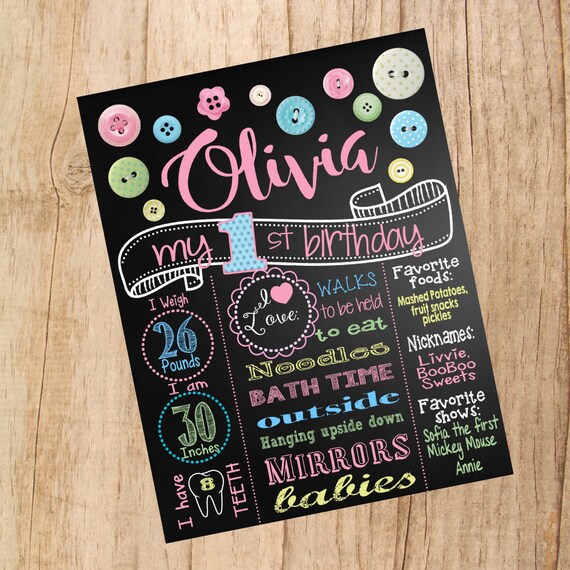 Olivia
my 1st birthday
I Weigh
26
Pounds
I am
30
Inches
I have
8
TEETH
I
Love:
WALKS
to be held
to eat
Noodles
BATH TIME
outside
Hanging upside down
MIRRORS
babies
Favorite
foods:
Mashed Potatoes,
fruit snacks
pickles
Nicknames:
Livvie,
BooBoo
Sweets
Favorite
shows:
Sofia the first
Mickey Mouse
Annie